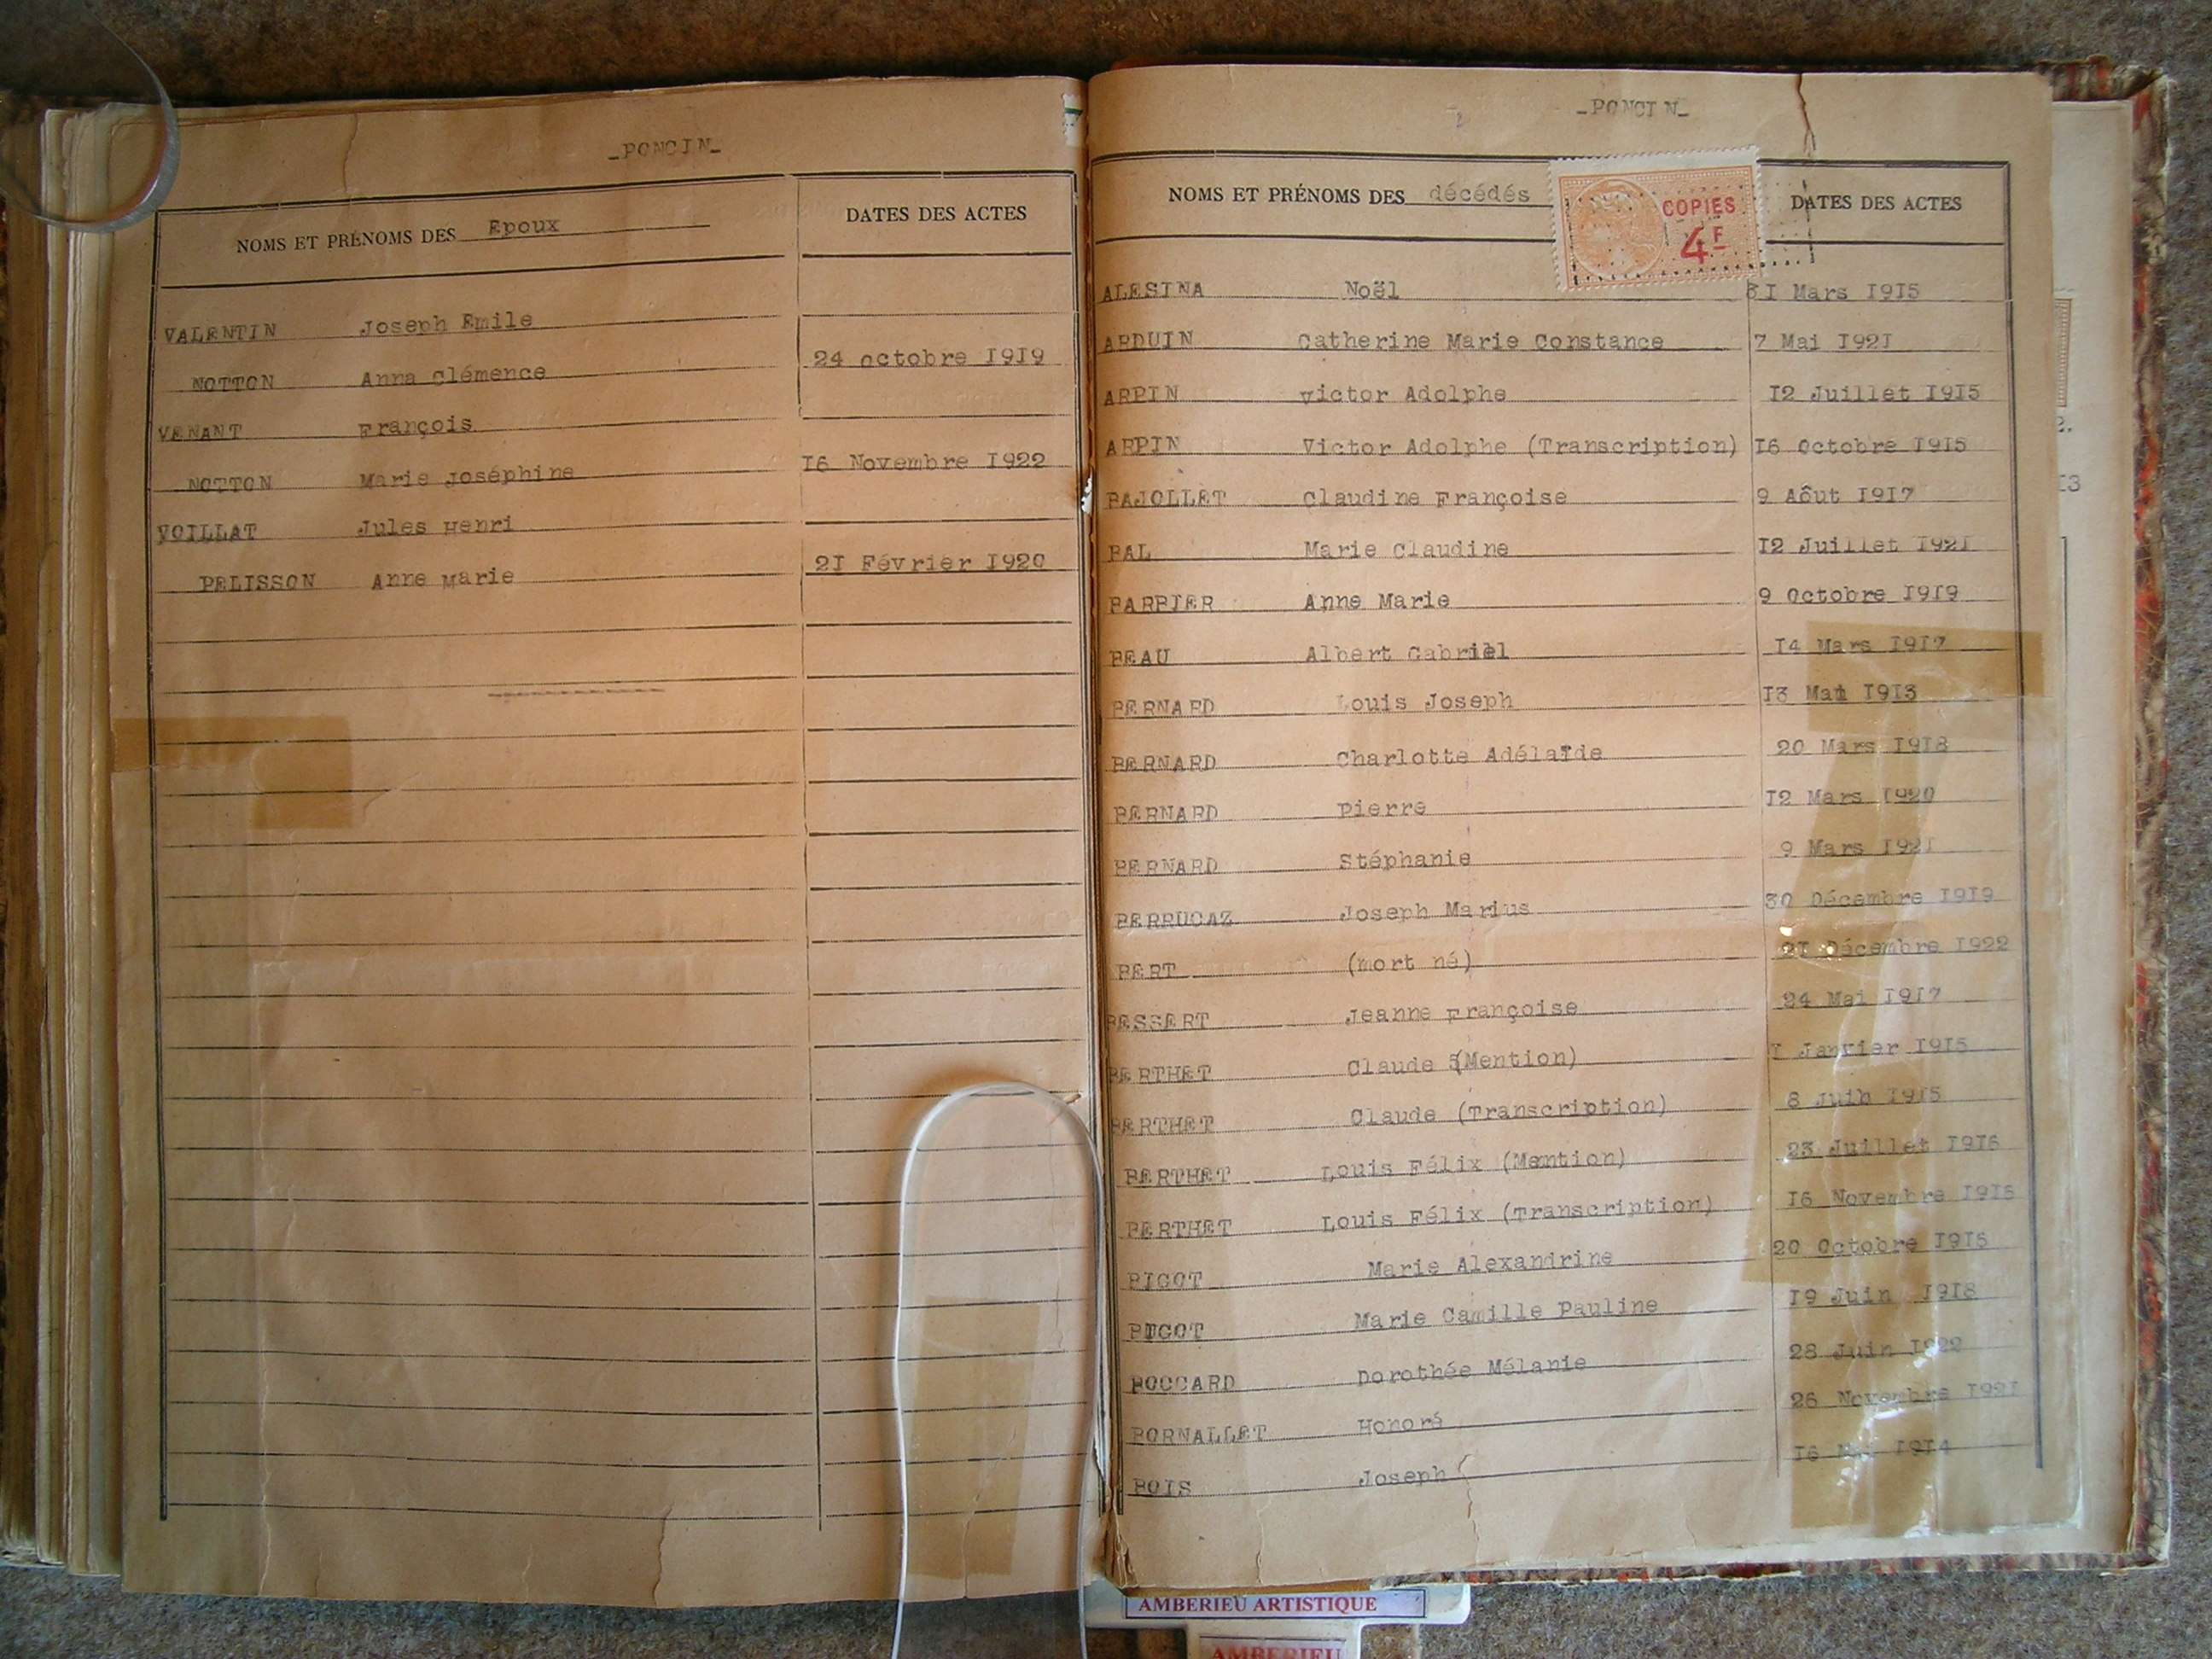 _PONCIN_
NOMS ET PRÉNOMS DES Epoux
DATES DES ACTES
VALENTIN Joseph Emile
24 octobre 1919
NOTTON Anna Clémence
VENANT François
16 Novembre 1922
NOTTON Marie Joséphine
VOILLAT Jules Henri
21 Février 1920
PELISSON Anne Marie
_PONCIN_
NOMS ET PRÉNOMS DES décédés
COPIES
4F
DATES DES ACTES
ALESINA Noël 31 Mars 1915
ARDUIN Catherine Marie Constance 7 Mai 1921
ARPIN Victor Adolphe 12 Juillet 1915
ARPIN Victor Adolphe (Transcription) 16 Octobre 1915
BAJOLLET Claudine Françoise 9 Aôut 1917
BAL Marie Claudine 12 Juillet 1921
BARBIER Anne Marie 9 Octobre 1919
BEAU Albert Gabriel 14 Mars 1917
BERNARD Louis Joseph 13 Mai 1913
BERNARD Charlotte Adélaïde 20 Mars 1918
BERNARD Pierre 12 Mars 1920
BERNARD Stéphanie 9 Mars 1921
BERRUCAZ Joseph Marius 30 Décembre 1919
BERT (mort né) Décembre 1922
BESSERT Jeanne Françoise 24 Mai 1917
BERTHET Claude (Mention) Janvier 1915
BERTHET Claude (Transcription) 8 Juin 1915
BERTHET Louis Félix (Mention) 23 Juillet 1916
BERTHET Louis Félix (Transcription) 16 Novembre
BIGOT Marie Alexandrine 20 Octobre 1915
BIGOT Marie Camille Pauline 19 Juin 1918
BOCCARD Dorothée Mélanie 28 Juin 1922
BORNALLET Honoré 26 Novembre 1921
BOIS Joseph 16 1914
AMBERIEU ARTISTIQUE
AMBERIEU